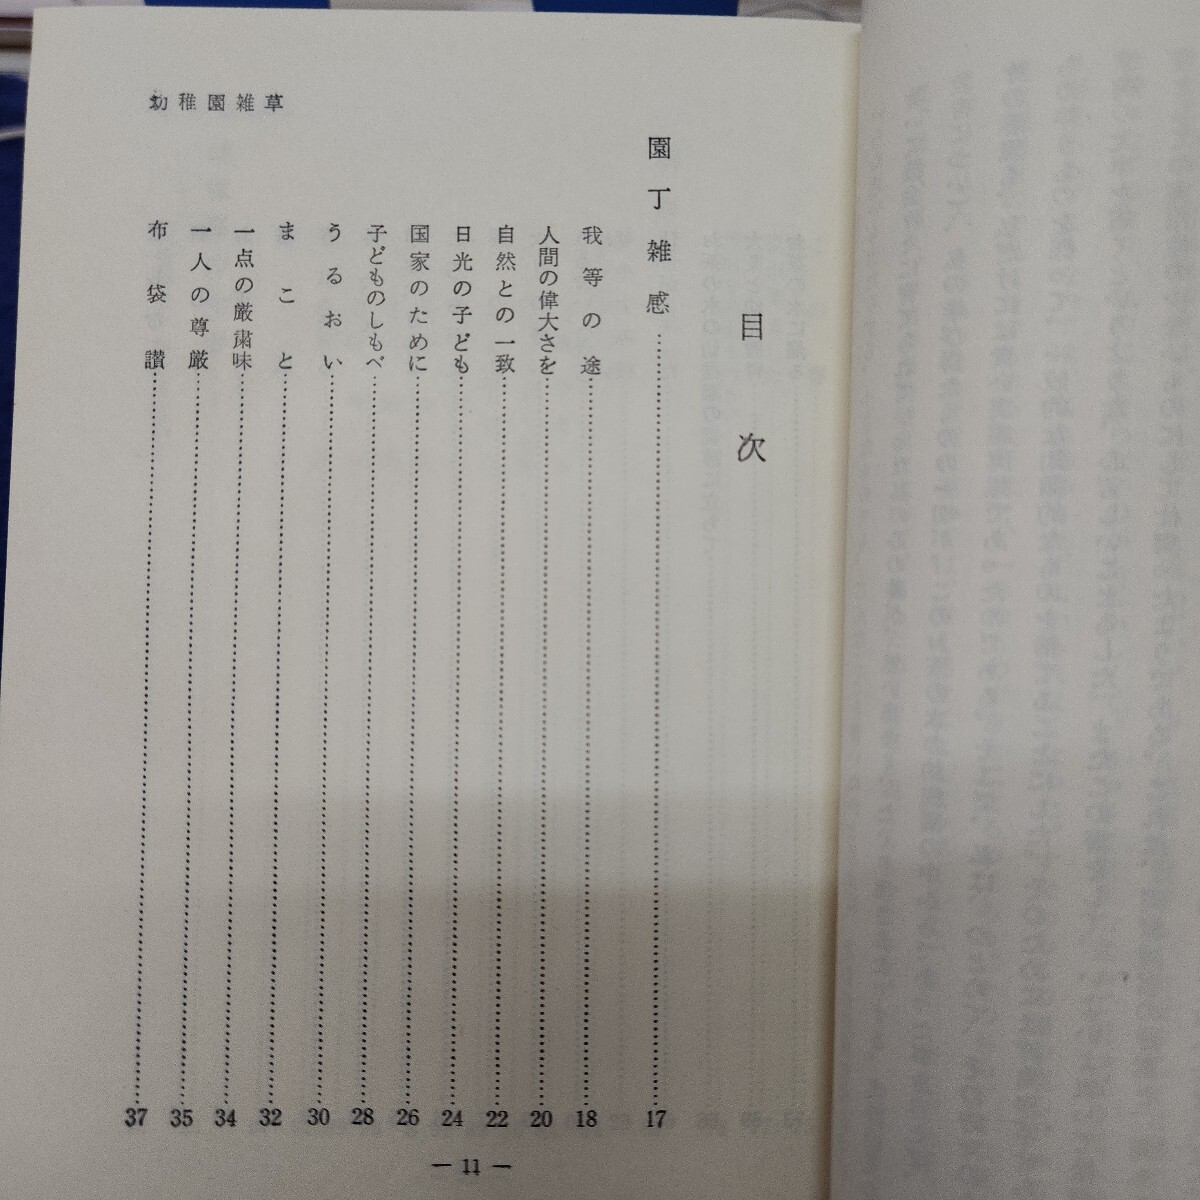 幼稚園雑草
目次
園丁雑感……17
我等の途……18
人間の偉大さを……20
自然との一致……22
日光の子ども……24
国家のために……26
子どものしもべ……28
うるおい……30
まこと……32
一点の厳粛味……34
一人の尊厳……35
布袋讃……37
— 11 —